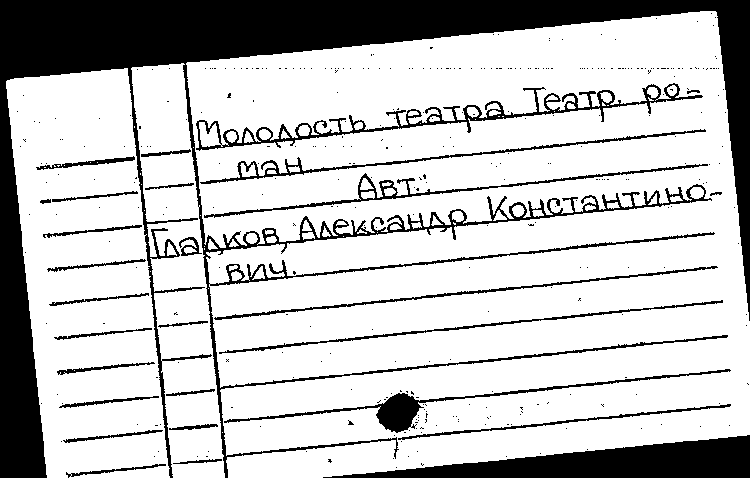 Молодость театра. Театр. ро-
ман
Авт.:
Гладков, Александр Константино-
вич.